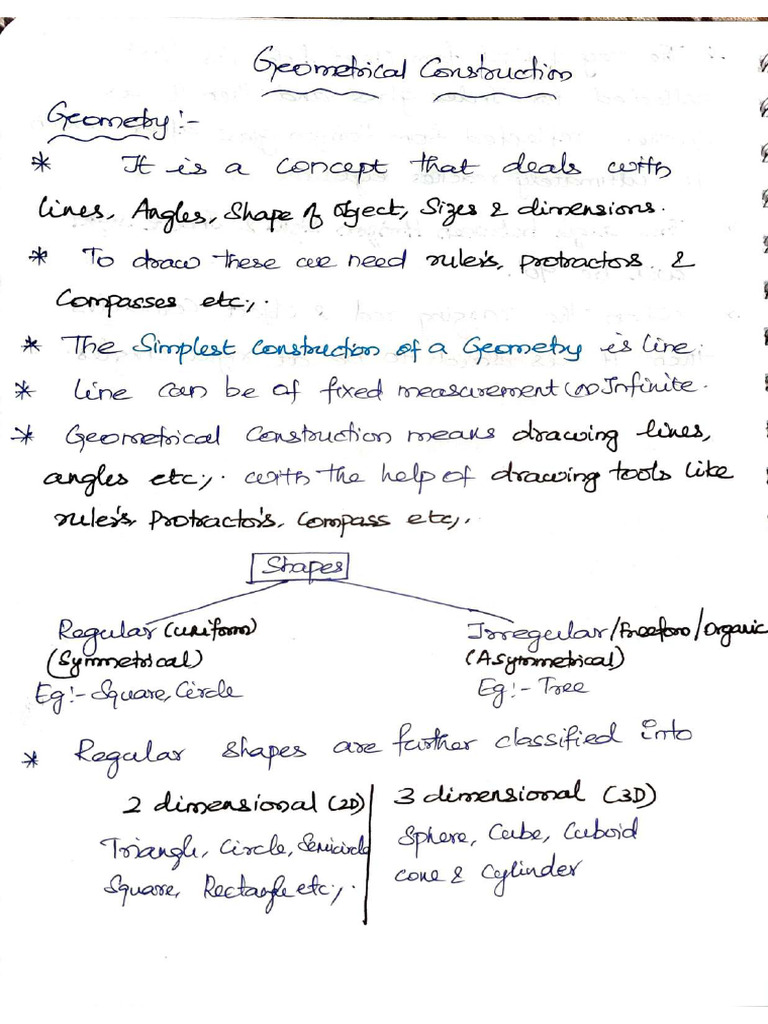 Geometrical Construction
Geometry:-
* It is a concept that deals with
lines, Angles, Shape of object, Sizes & dimensions.
* To draw these we need rulers, protractors &
Compasses etc;.
* The Simplest construction of a Geometry is line.
* Line can be of fixed measurement (or) Infinite.
* Geometrical Construction means drawing lines,
angles etc;. with the help of drawing tools like
rulers, Protractors, Compass etc;.
Shapes
Regular (uniform)
(Symmetrical)
Eg:- Square, Circle
Irregular/Freeform/Organic
(Asymmetrical)
Eg:- Tree
* Regular shapes are further classified into
2 dimensional (2D)
Triangle, Circle, Semicircle
Square, Rectangle etc;.
3 dimensional (3D)
Sphere, Cube, Cuboid
Cone & Cylinder